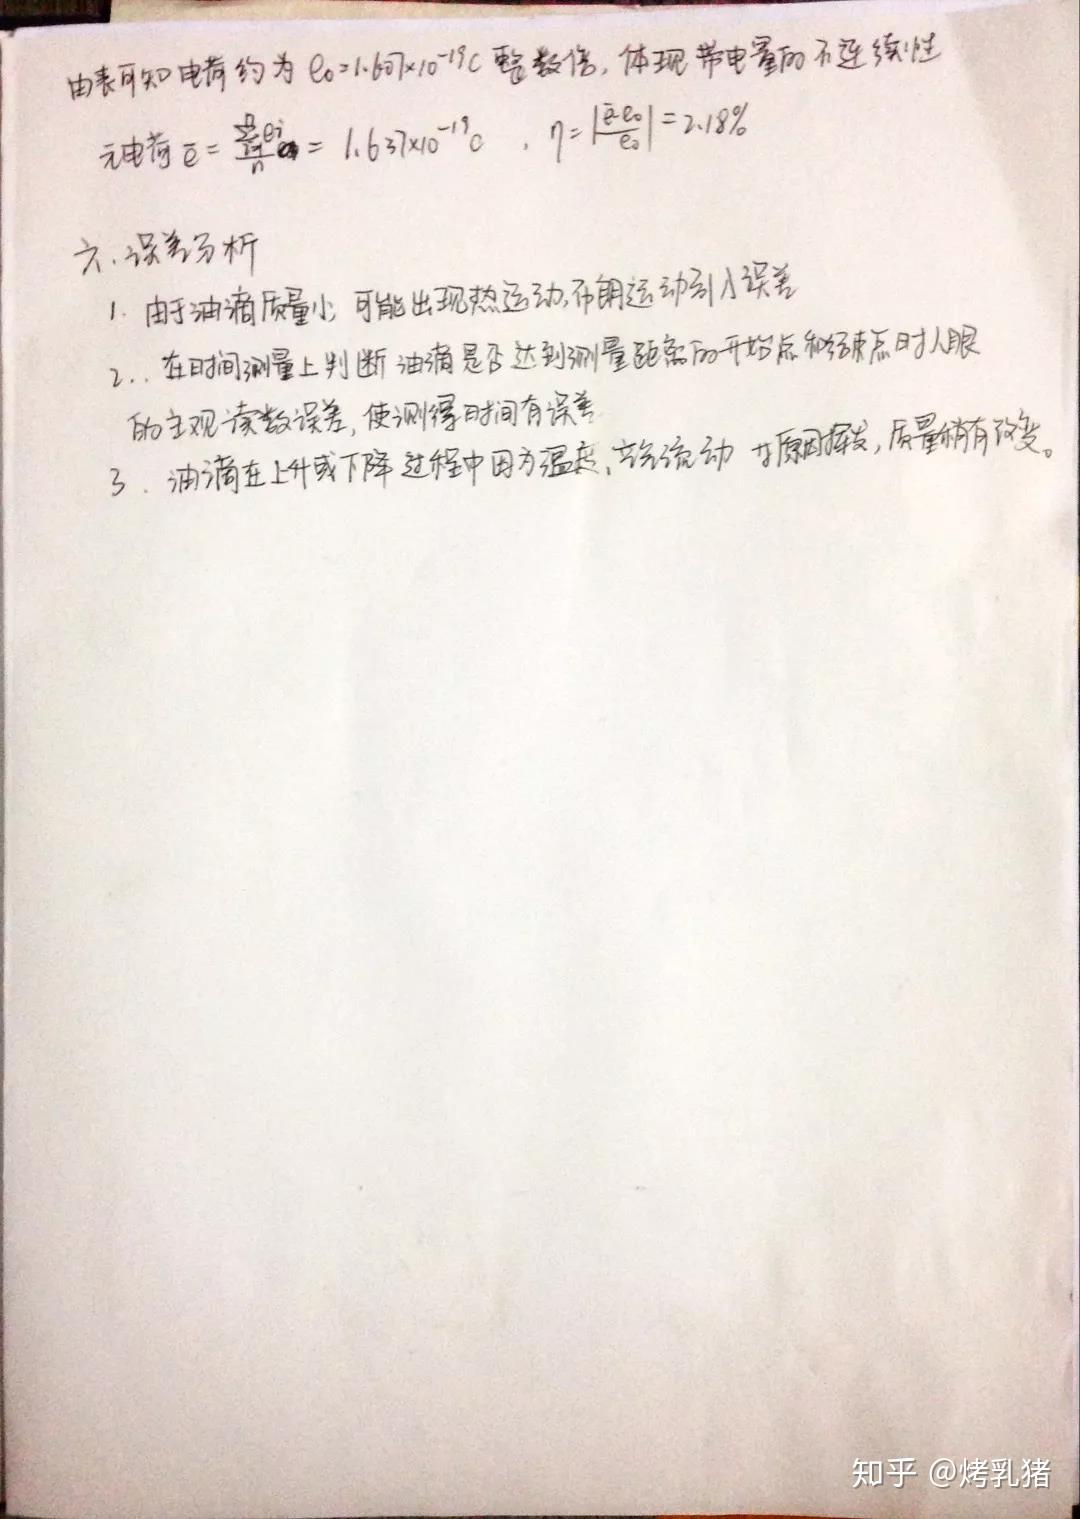 由表可知电荷约为 e₀=1.607×10⁻¹⁹C 整数倍，体现带电量的不连续性
元电荷 ē = = 1.637×10⁻¹⁹C ，η=|ē-e₀/e₀|=2.18%
六、误差分析
1. 由于油滴质量小，可能出现热运动，布朗运动引入误差
2.. 在时间测量上判断油滴是否达到测量距离的开始点和结束点时人眼
的主观读数误差，使测得时间有误差
3. 油滴在上升或下降过程中因为温度、流动 原因挥发，质量稍有改变。
知乎 @烤乳猪